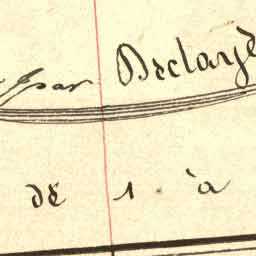 par Declayè
de 1 à